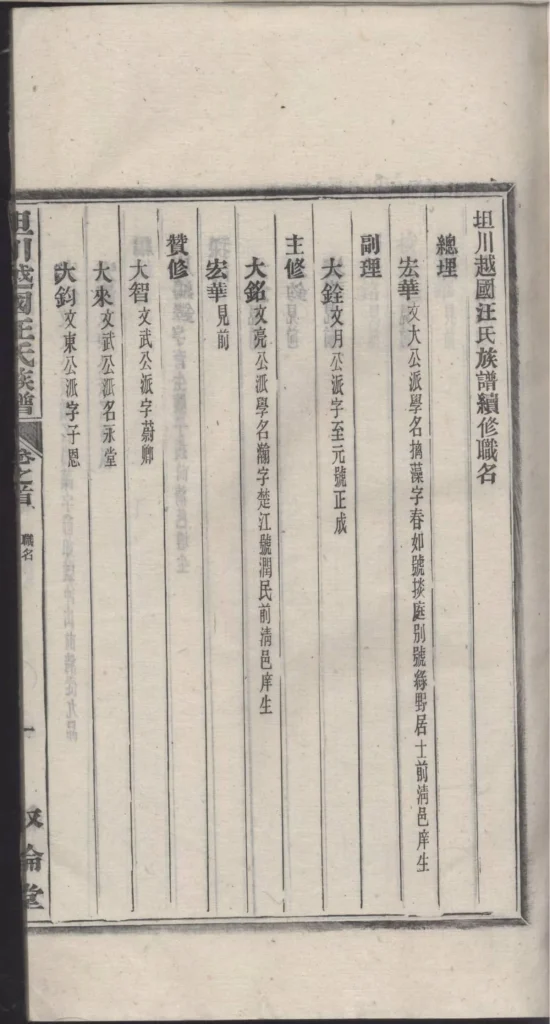 坦川越國汪氏族譜續修職名
總理
宏華文大公派學名摛藻字春如號掞庭別號綠野居士前淸邑庠生
副理
大銓文月公派字至元號正成
主修
大銘文亮公派學名瀚字楚江號潤民前淸邑庠生
宏華見前
贊修
大智文武公派字蔚卿
大來文武公派名承堂
大鈞文東公派字子恩
坦川越國汪氏族譜 卷之首 職名 一 敘倫堂